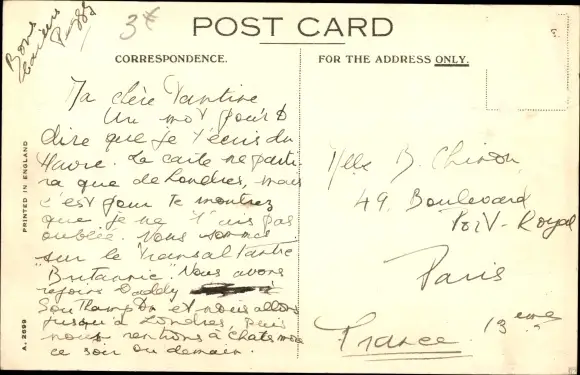 Bons
Baisers
Peggy
3*
POST CARD
CORRESPONDENCE.
FOR THE ADDRESS ONLY.
Ma chère Tantine
Un mot pour
dire que je t'écris du
Havre. La carte ne parti
ra que de Londres, mais
c'est pour te montrez
que je ne t'ais pas
oubliée. Nous sommes
sur le Transatlantic
"Britannic". Nous avons
rejoins Daddy à
Southampton et nous allons
jusqu'à Londres, puis
nous rentrons à
ce soir ou demain.
Mlle B.
49. Boulevard
Port-Royal
Paris
13 eme
France
PRINTED IN ENGLAND
A. 2699